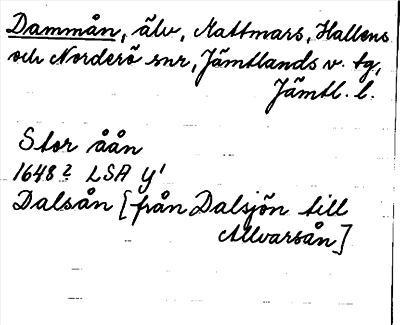 Dammån, älv, Mattmars, Hallens
och Norderö snr, Jämtlands v. tg,
Jämtl. l.
Stor åån
1648? LSA Y'
Dalsån [från Dalsjön till
Allvarsån]